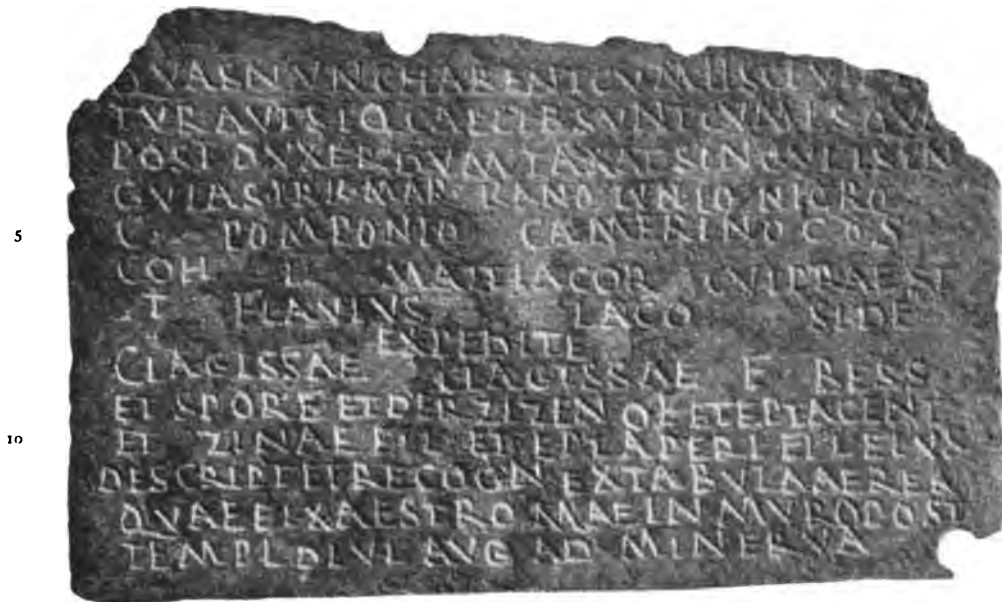 QVAS NVNC HABENT CVM IIS CIVIT
TVR AVT SI Q CAELIB SVNT CVM IS QVA
POST DVXER DVMTAXAT SINGVLI SIN
GVLAS PR K MAR KANO IVNIO NIGRO
5 C POMPONIO CAMERINO COS
COH I MATTIACOR CVI PRAEST
T FLAVIVS LACO SIDE
EXPEDITE
CLAGISSAE CLAGISSAE F BESS
ET SPORE ET DERZIZENO F E ET EPTACENT
10 ET ZINAE FIL ET EPTAPERI FIL EIVS
DESCRIPT ET RECOGN EX TABVLA AEREA
QVAE FIXA EST ROMAE IN MVRO POST
TEMPL DIVI AVG AD MINERVA